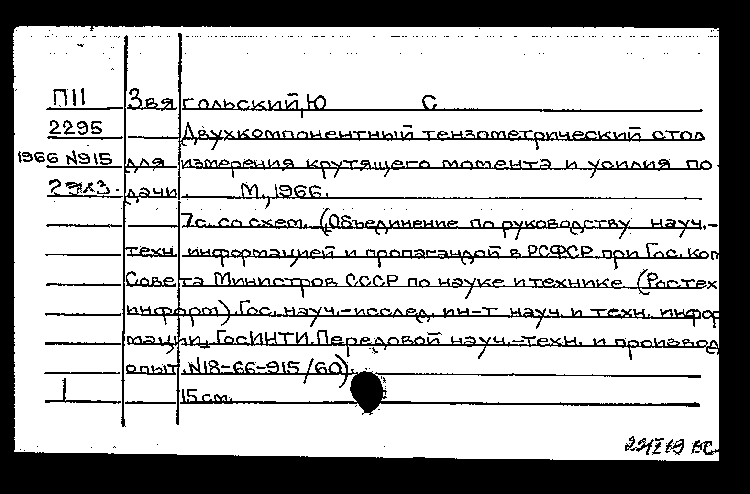 П11 Звягольский, Ю С
2295 Двухкомпонентный тензометрический стол
1966 N915 для измерения крутящего момента и усилия по
дачи. М., 1966.
7с. со схем. (Объединение по руководству науч.-
техн. информацией и пропагандой в РСФСР при Гос. ком
Совета Министров СССР по науке и технике (Ростех
информ). Гос. науч.-исслед. ин-т науч. и техн. инфор
мации. ГосИНТИ. Передовой науч.-техн. и производ
опыт. N18-66-915/60).
1 15 см.